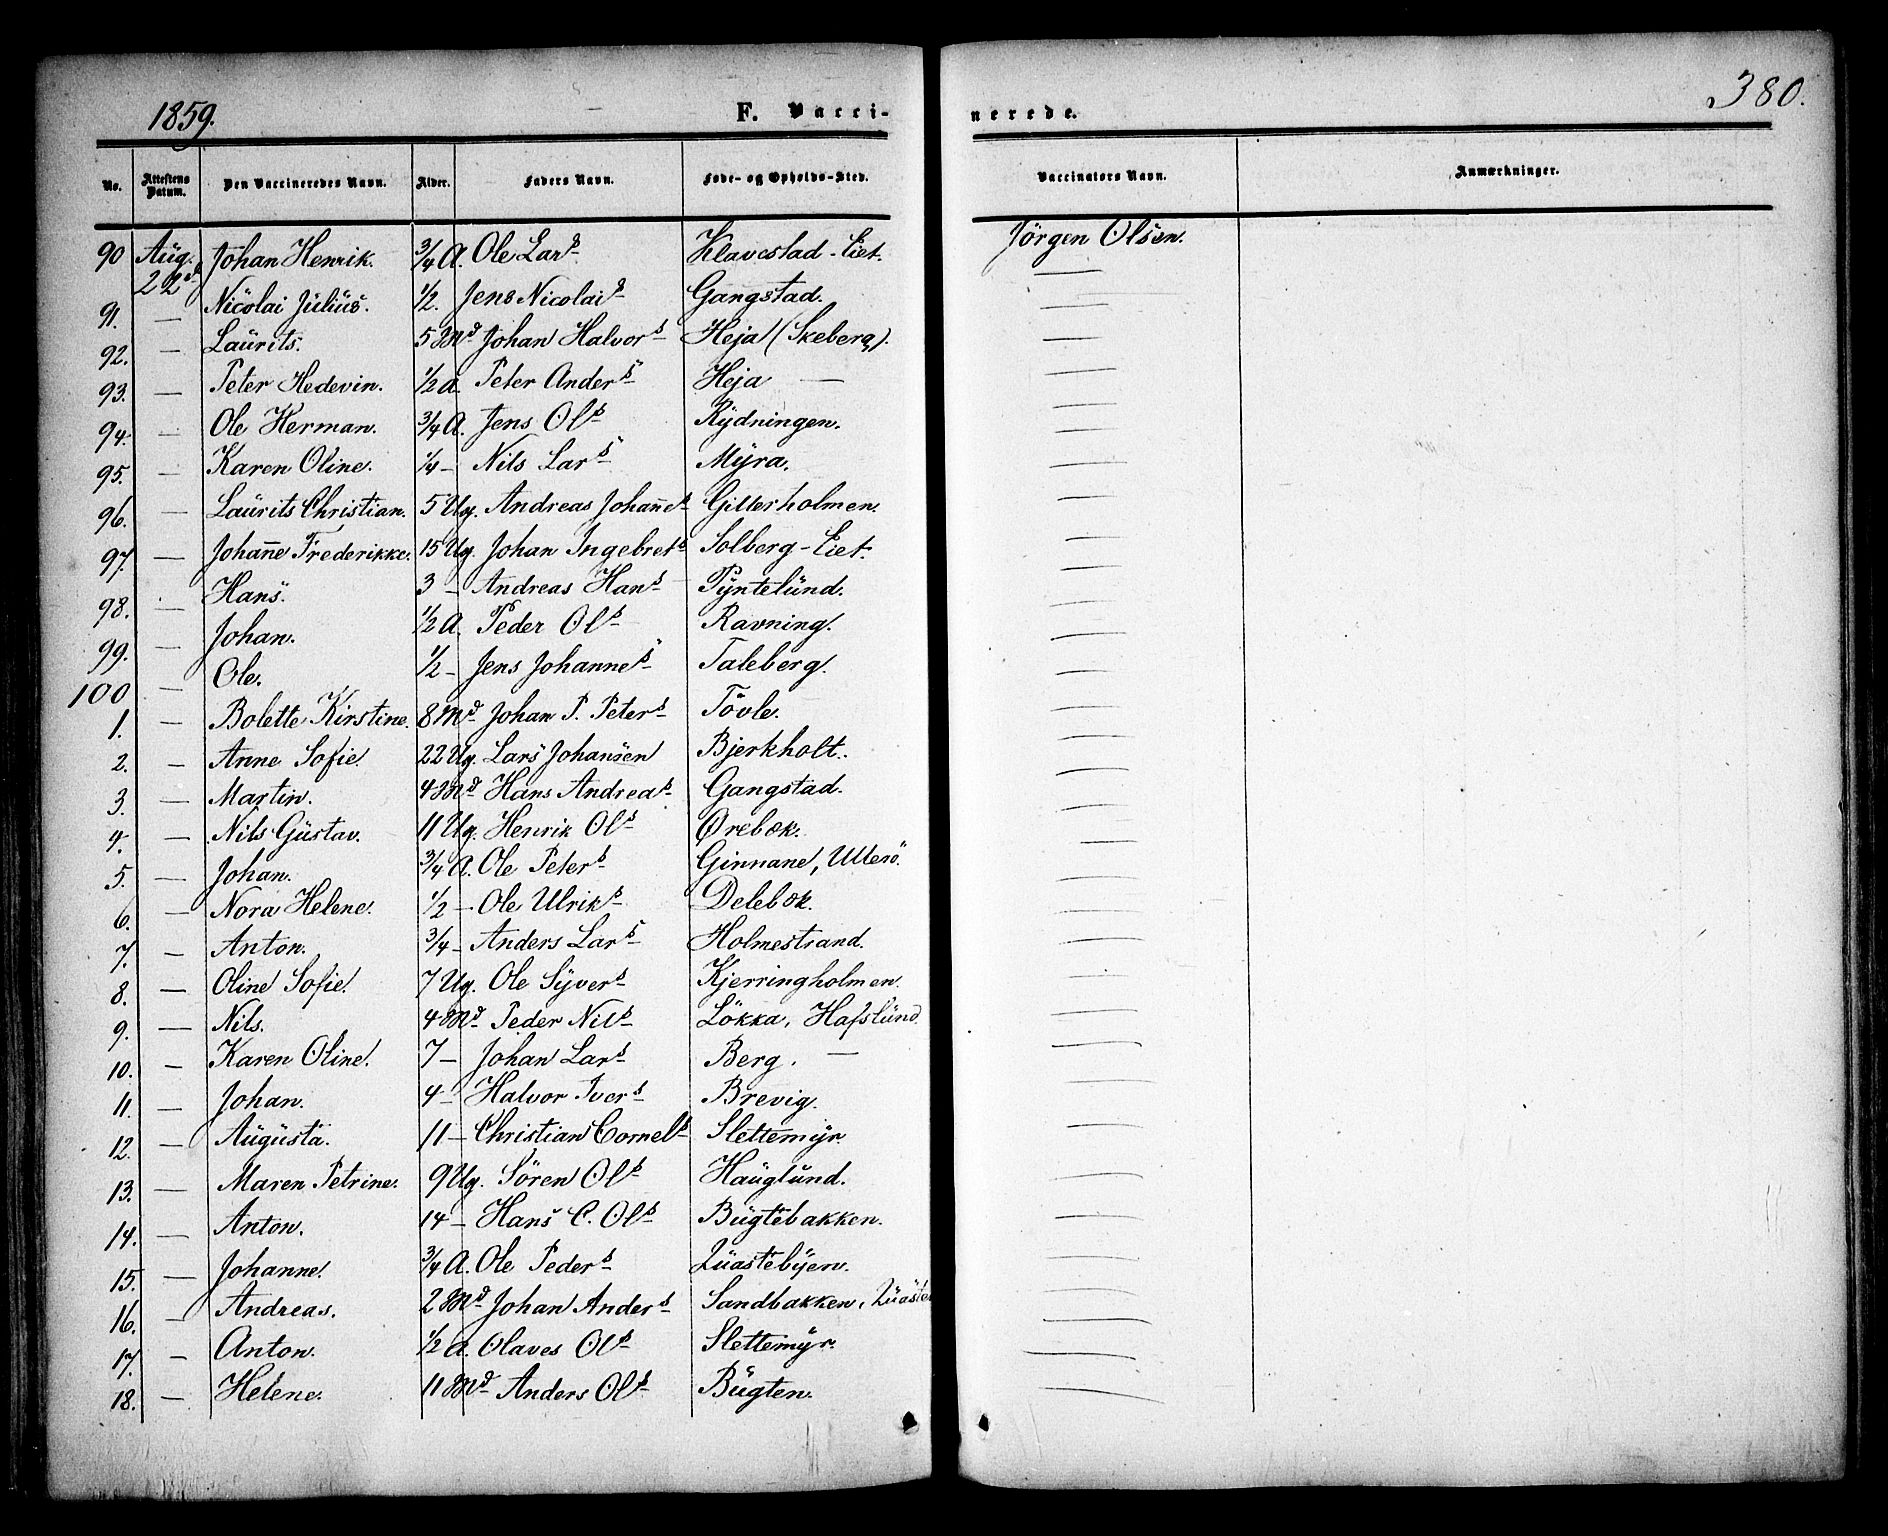 1859.
F. Vacci-
nerede.
380.
No. Attestens Datum. Den Vaccineredes Navn. Alder. Faders Navn. Føde- og Opholds-Sted. Vaccinators Navn. Anmærkninger.
90 Aug. 22d Johan Henrik. 3/4 A. Ole Lars Klavestad-Eiet. Jörgen Olsen.
91. — Nicolai Julius. 1/2. Jens Nicolais Gangstad. —
92. — Laurits. 5 Md Johan Halvors Heja (Skeberg). —
93. — Peter Hedevin. 1/2 A. Peter Anders Heja — —
94. — Ole Herman. 3/4 A. Jens Ols Rydningen. —
95. — Karen Oline. 1/4 — Nils Lars Myra. —
96. — Laurits Christian. 5 Ug. Andreas Johannes Gitterholmen. —
97. — Johanne Frederikke. 15 Ug. Johan Ingebrets Solberg-Eiet. —
98. — Hans. 3 — Andreas Hans Pyntelund. —
99. — Johan. 1/2 A. Peder Ols Ravning. —
100 — Ole. 1/2 — Jens Johannes Taleberg. —
1. — Bolette Kirstine. 8 Md Johan P. Peters Tövle. —
2. — Anne Sofie. 22 Ug. Lars Johansen Bjerkholt. —
3. — Martin. 4 Md Hans Andreas Gangstad. —
4. — Nils Gustav. 11 Ug. Henrik Ols Ørebæk. —
5. — Johan. 3/4 A. Ole Peters Ginnane, Ullerö. —
6. — Nora Helene. 1/2 — Ole Ulriks Delebæk. —
7. — Anton. 3/4 — Anders Lars Holmestrand. —
8. — Oline Sofie. 7 Ug. Ole Syvers Kjerringholmen. —
9. — Nils. 4 Md Peder Nils Lökka, Hafslund. —
10. — Karen Oline. 7 — Johan Lars Berg. — —
11. — Johan. 4 — Halvor Ivers Brevig. —
12. — Augusta. 11 — Christian Cornels Slettemyr. —
13. — Maren Petrine. 9 Ug. Sören Ols Hauglund. —
14. — Anton. 14 — Hans C. Ols Bugtebakken. —
15. — Johanne. 3/4 A. Ole Peders —
16. — Andreas. 2 Md Johan Anders Sandbakken, —
17. — Anton. 1/2 A. Olaves Ols Slettemyr. —
18. — Helene. 11 Md Anders Ols Bugten. —